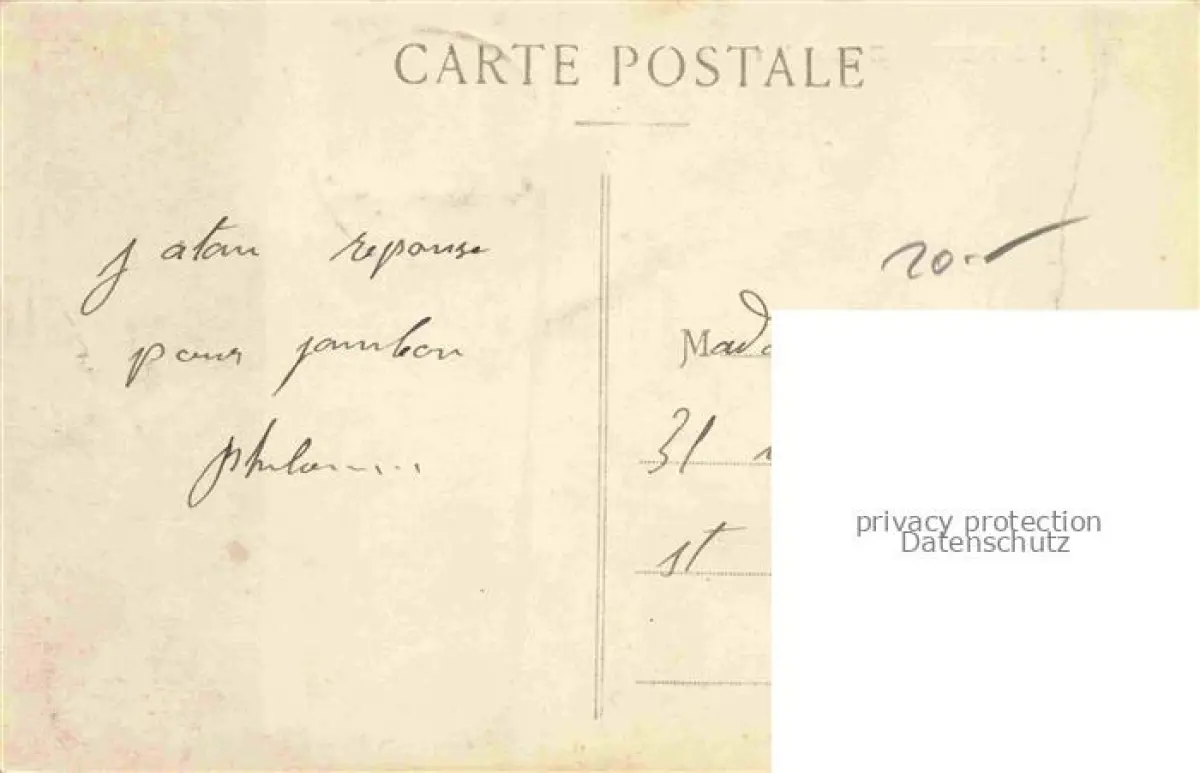 CARTE POSTALE
j atan reponse
pour jambon
20.-
Mada
31
st
privacy protection
Datenschutz